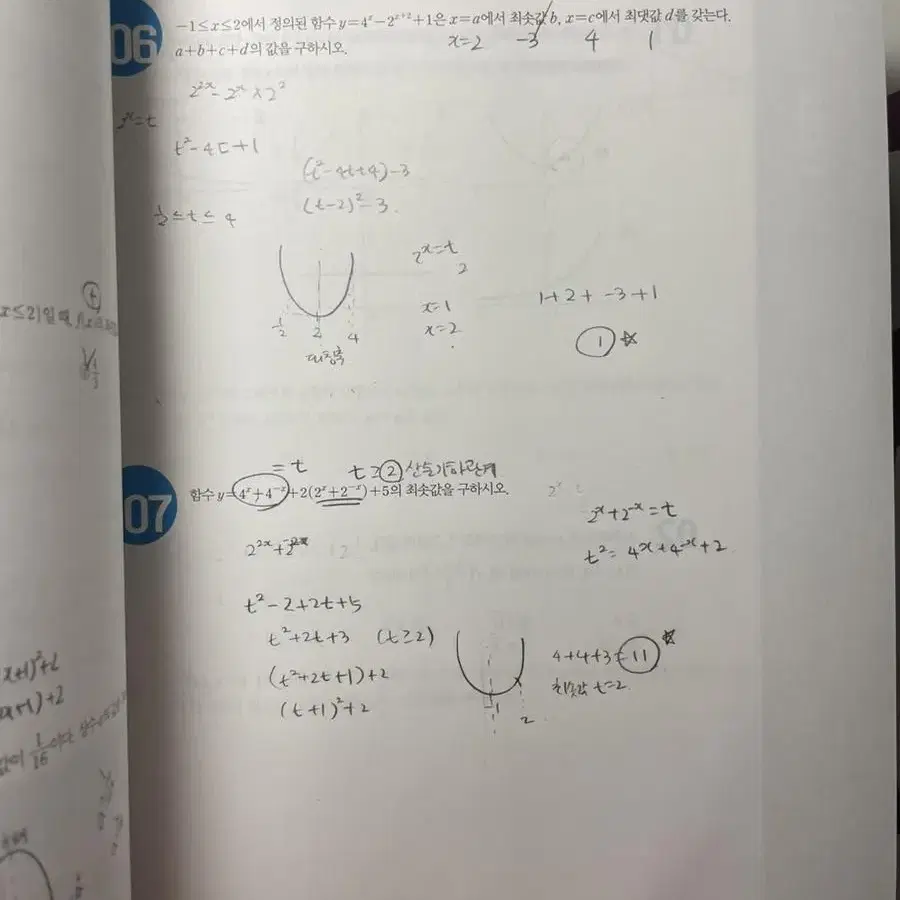 06
-1≤x≤2에서 정의된 함수 y=4ˣ-2ˣ⁺²+1은 x=a에서 최솟값 b, x=c에서 최댓값 d를 갖는다.
a+b+c+d의 값을 구하시오.
x=2 -3 4 1
2²ˣ-2ˣ×2²
2ˣ=t
t²-4t+1
(t²-4t+4)-3
½≤t≤4
(t-2)²-3
2ˣ=t
2
x=1
x=2
½ 2 4
대칭축
1+2+-3+1
1
=t t≥2 산술기하관계
07
함수 y=4ˣ+4⁻ˣ+2(2ˣ+2⁻ˣ)+5의 최솟값을 구하시오.
2ˣ+2⁻ˣ=t
t²=4ˣ+4⁻ˣ+2
t²-2+2t+5
t²+2t+3 (t≥2)
(t²+2t+1)+2
(t+1)²+2
-1 2
4+4+3=11
최솟값 t=2
x≤2일 때,
t
⅓
(x+1)²+2
x+1)+2
값이 1/16이다